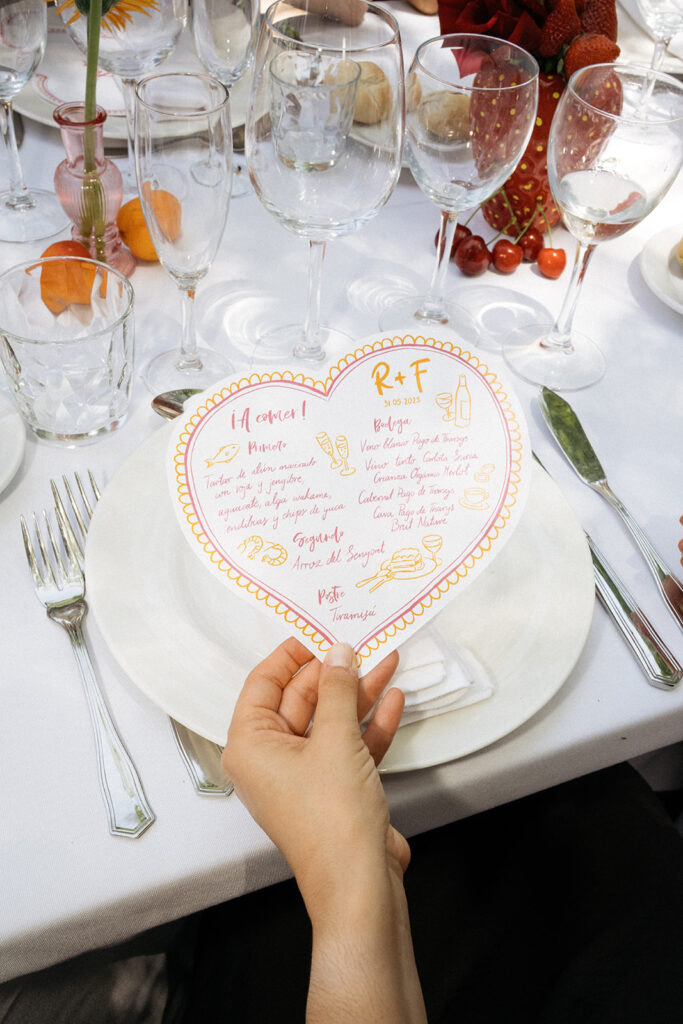 ¡A comer!
Primero
Tartar de atún macerado
con soja y jengibre,
aguacate, alga wakame,
endibias y chips de yuca
Segundo
Arroz del Senyoret
Postre
Tiramisú
R + F
31.05.2025
Bodega
Vino blanco Pago de Tharsys
Vino tinto Carlota Suria
Crianza Organic Merlot
Cabernet Pago de Tharsys
Cava Pago de Tharsys
Brut Nature